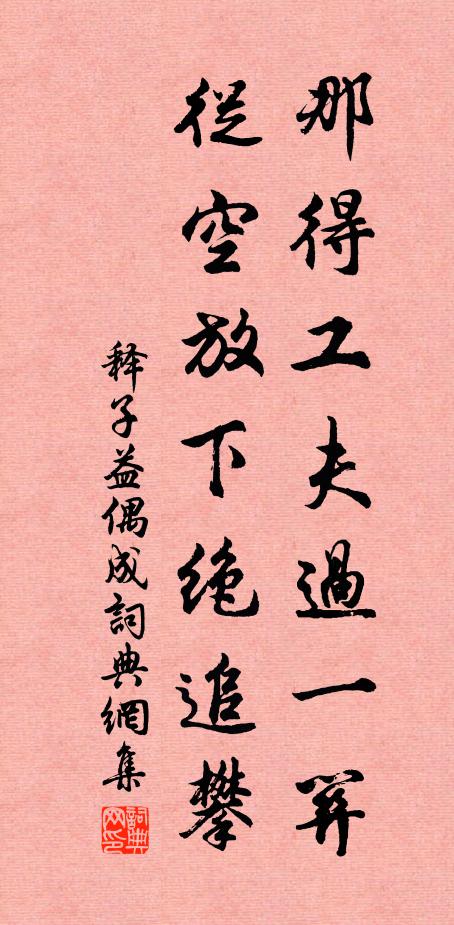 那得工夫過一
從空放下絶追攀
釋子益偶成詞典網集
詞典
网印